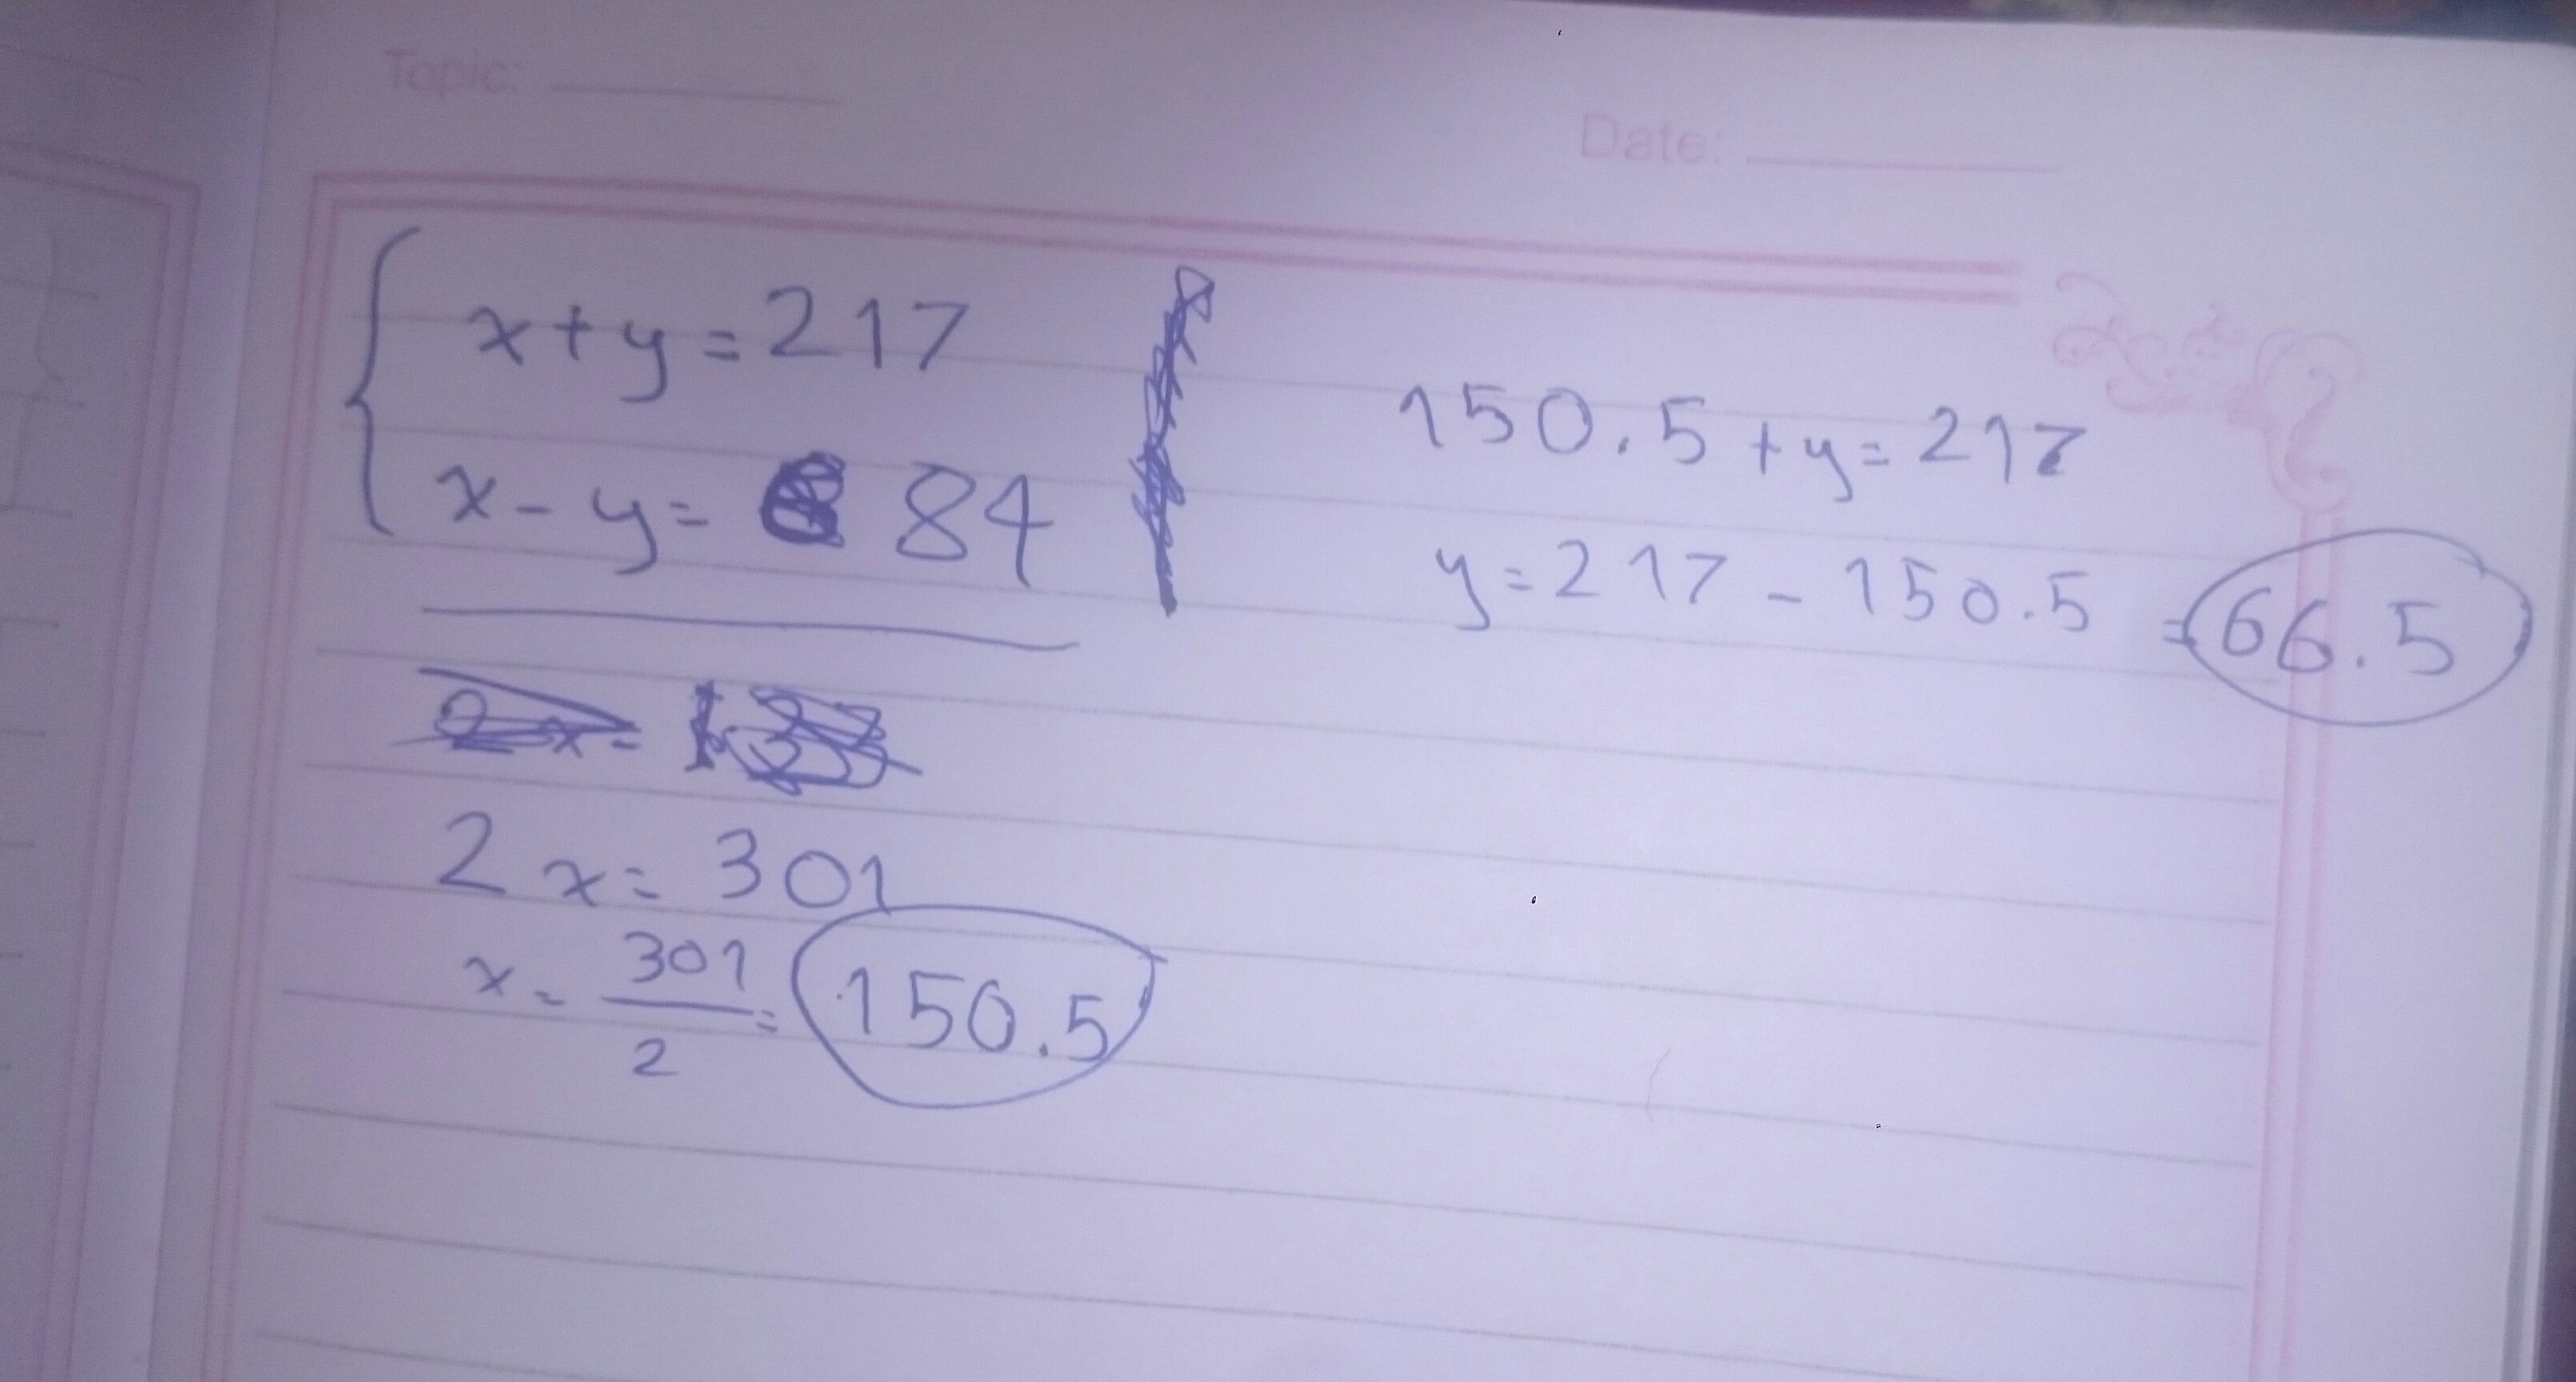 Topic:
Date:
x+y=217
x-y= 84
2x=301
x=301/2=150.5
150.5+y=217
y=217-150.5=66.5